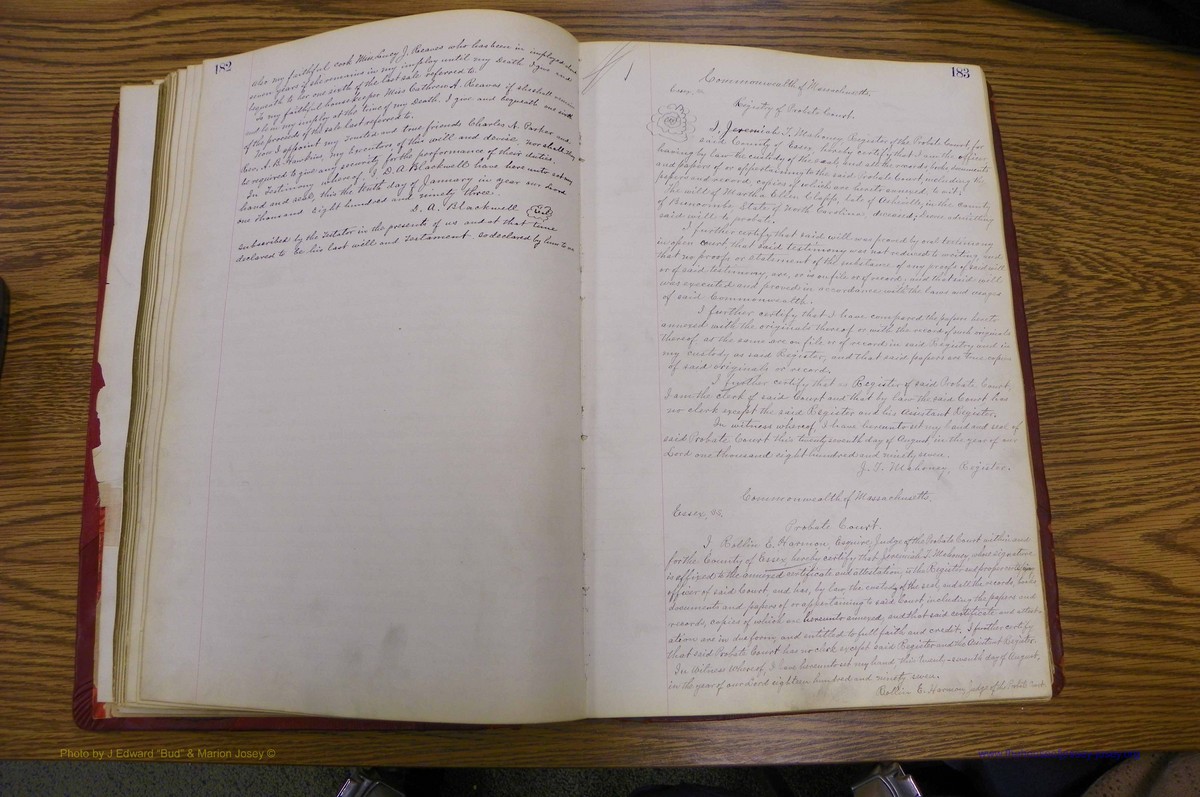 182
who my faithful cook Miss Lucy J. Reaves who has been in imployed
seven years if she remains in my imploy until my Death I give and
bequeath to her one sixth of the last sale refered to.
To my faithful housekeeper Miss Catherine A. Reaves if she shall
in my imploy at the time of my Death. I give and bequeath one sixth
of the proceeds of the sale last refered to.
I appoint my trusted and true friends Charles N. Parker and
Rev. A. B. Hawkins, my Executors of this will and devise, nor shall they
be required to give any security for the performance of their duties.
In Testimony whereof, I D. A. Blackwell have here unto set my
hand and seal, this the tenth day of January in year our Lord
one Thousand eight hundred and ninety three.
D. A. Blackwell (Seal)
subscribed by the Testator in the presents of us and at that time
declared to be his last will and Testament so declared by him to us
183
Commonwealth of Massachusetts.
Essex, ss.
Registry of Probate Court.
I, Jeremiah T. Mahoney Register of the Probate Court for
said County of Essex, hereby certify that I am the officer
having by law the custody of the seal, and all the records, books, documents
and papers of or appertaining to the said Probate Court, including the
papers and record, copies of which are hereto annexed, to wit:
The will of Martha Ellen Clapp, late of Asheville, in the county
of Buncombe State of North Carolina, deceased; decree admitting
said will to probate.
I further certify that said will was proved by oral testimony
in open court, that said testimony was not reduced to writing, and
that no proofs or statement of the substance of any proofs of said will
or of said testimony, are, or is on file or of record, and that said will
was executed and proved in accordance with the laws and usages
of said Commonwealth.
I further certify that I have compared the papers hereto
annexed with the originals thereof or with the record of such originals
thereof, as the same are on file or of record in said Registry and in
my custody, as said Register, and that said papers are true copies
of said originals or record.
I further certify that as Register of said Probate Court,
I am the clerk of said Court and that by law the said Court has
no clerk except the said Register and his Assistant Register.
In witness whereof, I have hereunto set my hand and seal of
said Probate Court this twenty seventh day of August in the year of our
Lord one thousand eight hundred and ninety seven.
J. T. Mahoney, Register.
Commonwealth of Massachusetts.
Essex, ss.
Probate Court.
I, Rollin E. Harmon, Esquire, Judge of the Probate Court within and
for the County of Essex, hereby certify that Jeremiah T. Mahoney, whose signature
is affixed to the annexed certificate and attestation, is the Register and proper certifying
officer of said Court, and has, by law, the custody of the seal, and all the records, books
documents and papers of or appertaining to said Court including the papers and
records, copies of which are hereunto annexed, and that said certificate and attest-
ation are in due form, and entitled to full faith and credit. I further certify
that said Probate Court has no clerk except said Register and the Assistant Register.
In Witness Whereof, I have hereunto set my hand this twenty-seventh day of August,
in the year of our Lord eighteen hundred and ninety seven.
Rollin E. Harmon, Judge of the Probate Court
Photo by J Edward "Bud" & Marion Josey ©